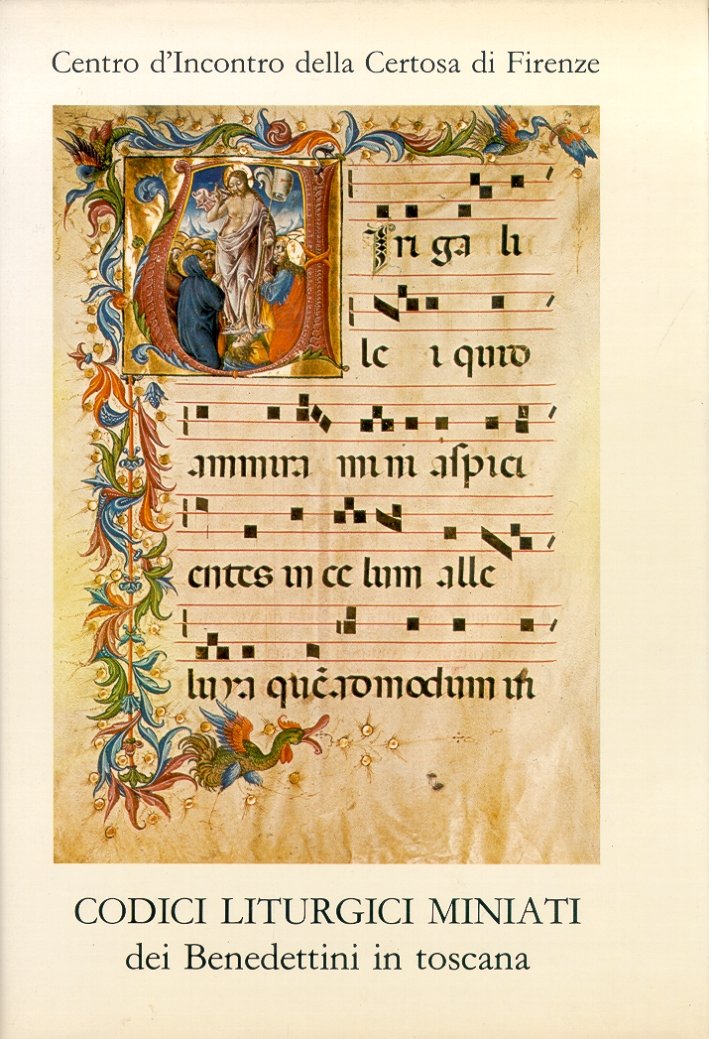 Centro d'Incontro della Certosa di Firenze
Viri ga li
le i quid
ammira mi ni aspici
entes in ce lum alle
luya quēadmodum ui
CODICI LITURGICI MINIATI
dei Benedettini in toscana